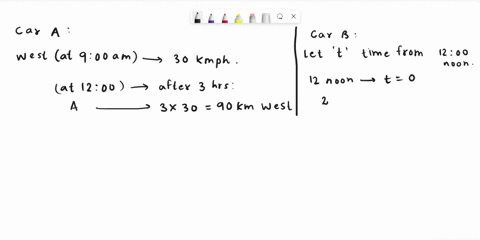 Car A:
West (at 9:00 am) → 30 kmph.
(at 12:00) → after 3 hrs:
A → 3 × 30 = 90 km West
Car B:
Let 't' time from 12:00
noon.
12 noon → t = 0
2